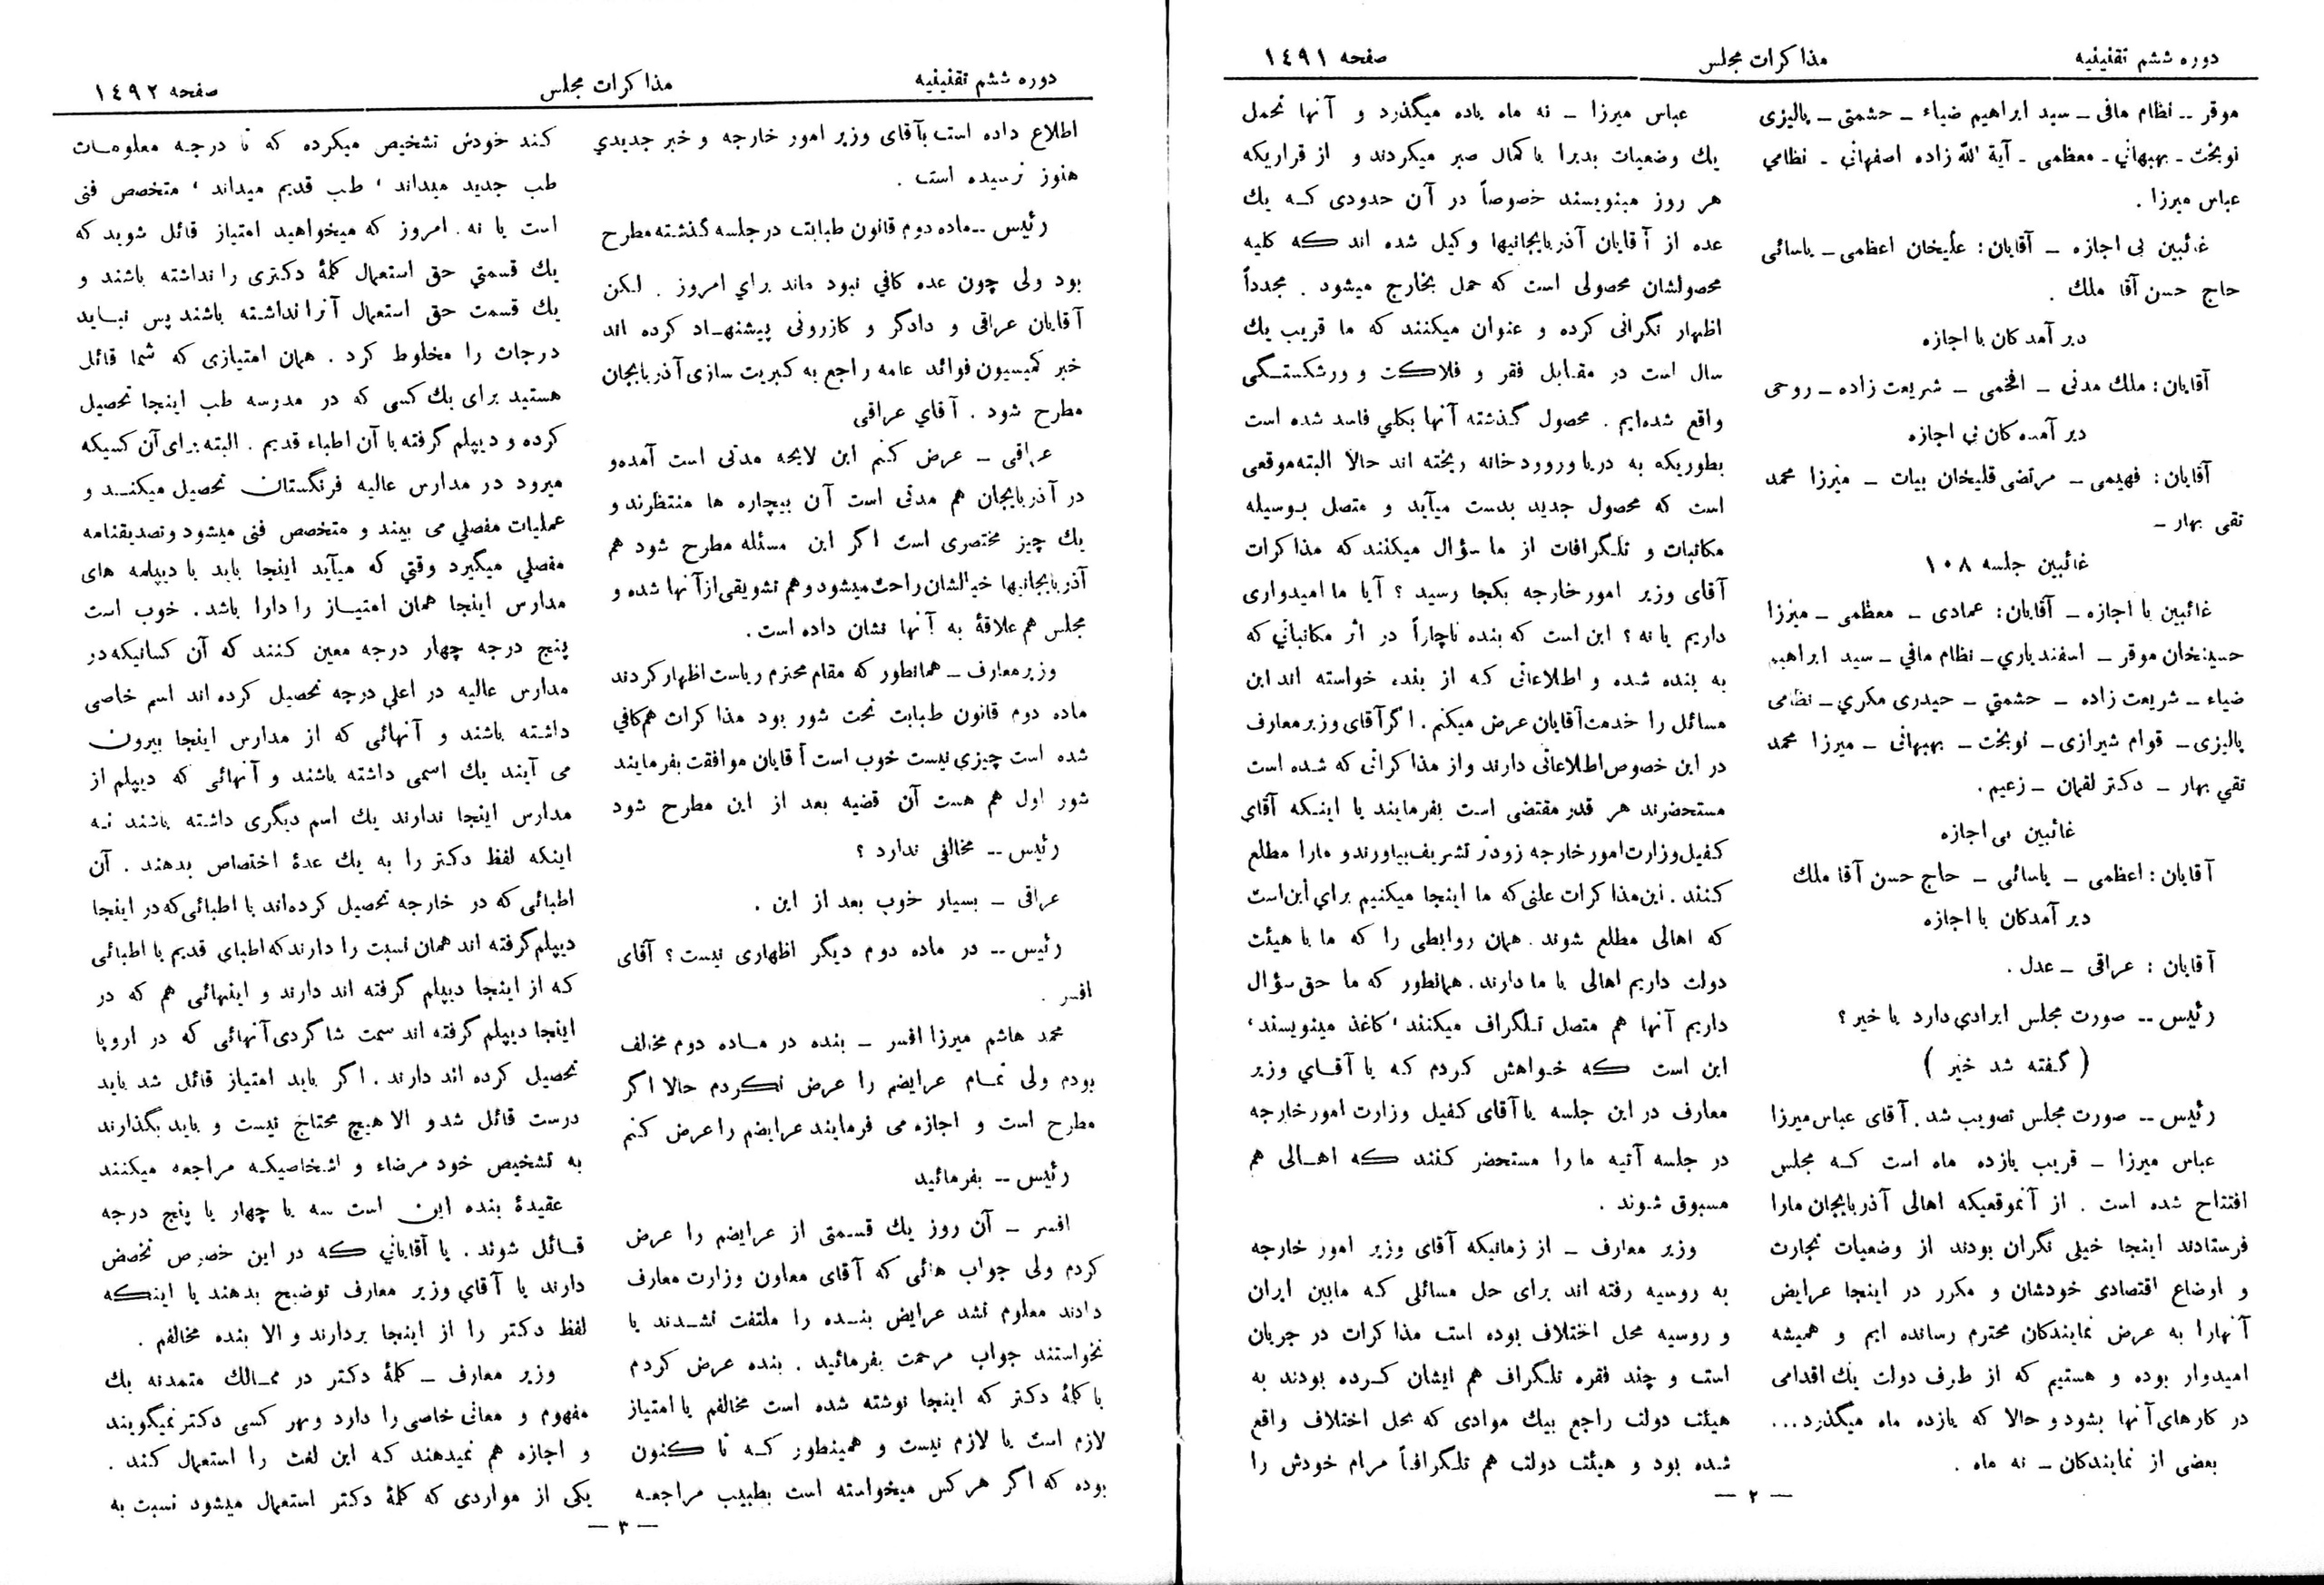 دوره ششم تقنینیه
مذاکرات مجلس
صفحه ١٤٩١
موقر -- نظام مافی - سید ابراهیم ضیاء - حشمتی - پالیزی
نوبخت - بهبهانی - معظمی - آیة الله زاده اصفهانی - نظامی
عباس میرزا .
غائبین بی اجازه - آقایان : علیخان اعظمی - یاسائی
حاج حسن آقا ملك .
دیر آمدکان با اجازه
آقایان : ملك مدنی - افخمی - شریعت زاده - روحی
دیر آمده کان بی اجازه
آقایان : فهیمی - مرتضی قلیخان بیات - میرزا محمد
تقی بهار -
غائبین جلسه ١٠٨
غائبین با اجازه - آقایان : عمادی - معظمی - میرزا
حسینخان موقر - اسفندیاری - نظام مافی - سید ابراهیم
ضیاء - شریعت زاده - حشمتی - حیدری مکری - نظامی
پالیزی - قوام شیرازی - نوبخت - بهبهانی - میرزا محمد
تقی بهار - دکتر لقمان - زعیم .
غائبین بی اجازه
آقایان : اعظمی - یاسائی - حاج حسن آقا ملك
دیر آمدکان با اجازه
آقایان : عراقی - عدل .
رئیس -- صورت مجلس ایرادی دارد یا خیر ؟
( گفته شد خیر )
رئیس -- صورت مجلس تصویب شد . آقای عباس میرزا
عباس میرزا - قریب یازده ماه است که مجلس
افتتاح شده است . از آنموقعیکه اهالی آذربایجان مارا
فرستادند اینجا خیلی نگران بودند از وضعیات تجارت
و اوضاع اقتصادی خودشان و مکرر در اینجا عرایض
آنهارا به عرض نمایندکان محترم رسانده ایم و همیشه
امیدوار بوده و هستیم که از طرف دولت یك اقدامی
در کارهای آنها بشود و حالا که یازده ماه میگذرد...
بعضی از نمایندکان - نه ماه .
عباس میرزا - نه ماه یاده میگذرد و آنها تحمل
یك وضعیات بدیرا با کمال صبر میکردند و از قراریکه
هر روز مینویسند خصوصاً در آن حدودی که یك
عده از آقایان آذربایجانیها وکیل شده اند که کلیه
محصولشان محصولی است که حمل بخارج میشود . مجدداً
اظهار نگرانی کرده و عنوان میکنند که ما قریب یك
سال است در مقابل فقر و فلاکت و ورشکستگی
واقع شده‌ایم . محصول گذشته آنها بکلی فاسد شده است
بطوریکه به دریا و رودخانه ریخته اند حالا البته موقعی
است که محصول جدید بدست میآید و متصل بوسیله
مکاتبات و تلگرافات از ما سؤال میکنند که مذاکرات
آقای وزیر امور خارجه بکجا رسید ؟ آیا ما امیدواری
داریم یا نه ؟ این است که بنده ناچاراً در اثر مکاتباتی که
به بنده شده و اطلاعاتی که از بنده خواسته اند این
مسائل را خدمت آقایان عرض میکنم . اگر آقای وزیر معارف
در این خصوص اطلاعاتی دارند و از مذاکراتی که شده است
مستحضرند هر قدر مقتضی است بفرمایند یا اینکه آقای
کفیل وزارت امور خارجه زودتر تشریف بیاورند و مارا مطلع
کنند . این مذاکرات علنی که ما اینجا میکنیم برای این است
که اهالی مطلع شوند . همان روابطی را که ما با هیئت
دولت داریم اهالی با ما دارند . همانطور که ما حق سؤال
داریم آنها هم متصل تلگراف میکنند ، کاغذ مینویسند ،
این است که خواهش کردم که یا آقای وزیر
معارف در این جلسه یا آقای کفیل وزارت امور خارجه
در جلسه آتیه ما را مستحضر کنند که اهالی هم
مسبوق شوند .
وزیر معارف - از زمانیکه آقای وزیر امور خارجه
به روسیه رفته اند برای حل مسائلی که مابین ایران
و روسیه محل اختلاف بوده است مذاکرات در جریان
است و چند فقره تلگراف هم ایشان کرده بودند به
هیئت دولت راجع بیك موادی که محل اختلاف واقع
شده بود و هیئت دولت هم تلگرافاً مرام خودش را
— ٢ —
دوره ششم تقنینیه
مذاکرات مجلس
صفحه ١٤٩٢
اطلاع داده است بآقای وزیر امور خارجه و خبر جدیدی
هنوز نرسیده است .
رئیس -- ماده دوم قانون طبابت در جلسه گذشته مطرح
بود ولی چون عده کافی نبود ماند برای امروز . لکن
آقایان عراقی و دادگر و کازرونی پیشنهاد کرده اند
خبر کمیسیون فوائد عامه راجع به کبریت سازی آذربایجان
مطرح شود . آقای عراقی
عراقی - عرض کنم این لایحه مدتی است آمده و
در آذربایجان هم مدتی است آن بیچاره ها منتظرند و
یك چیز مختصری است اگر این مسئله مطرح شود هم
آذربایجانیها خیالشان راحت میشود و هم تشویقی از آنها شده و
مجلس هم علاقهٔ به آنها نشان داده است .
وزیر معارف - همانطور که مقام محترم ریاست اظهار کردند
ماده دوم قانون طبابت تحت شور بود مذاکرات هم کافی
شده است چیزی نیست خوب است آقایان موافقت بفرمایند
شور اول هم هست آن قضیه بعد از این مطرح شود
رئیس -- مخالفی ندارد ؟
عراقی - بسیار خوب بعد از این .
رئیس -- در ماده دوم دیگر اظهاری نیست ؟ آقای
افسر .
محمد هاشم میرزا افسر - بنده در ماده دوم مخالف
بودم ولی تمام عرایضم را عرض نکردم حالا اگر
مطرح است و اجازه می فرمایند عرایضم را عرض کنم
رئیس -- بفرمائید
افسر - آن روز یك قسمتی از عرایضم را عرض
کردم ولی جواب هائی که آقای معاون وزارت معارف
دادند معلوم نشد عرایض بنده را ملتفت نشدند یا
نخواستند جواب مرحمت بفرمائید . بنده عرض کردم
با کلمهٔ دکتر که اینجا نوشته شده است مخالفم یا امتیاز
لازم است یا لازم نیست و همینطور که تا کنون
بوده که اگر هر کس میخواسته است بطبیب مراجعه
کند خودش تشخیص میکرده که تا درجه معلومات
طب جدید میداند ، طب قدیم میداند ، متخصص فنی
است یا نه . امروز که میخواهید امتیاز قائل شوید که
یك قسمتی حق استعمال کلمهٔ دکتری را نداشته باشند و
یك قسمت حق استعمال آنرا نداشته باشند پس نباید
درجات را مخلوط کرد . همان امتیازی که شما قائل
هستید برای یك کسی که در مدرسه طب اینجا تحصیل
کرده و دیپلم گرفته با آن اطباء قدیم . البته برای آن کسیکه
میرود در مدارس عالیه فرنگستان تحصیل میکند و
عملیات مفصلی می بیند و متخصص فنی میشود و تصدیقنامه
مفصلی میگیرد وقتی که میآید اینجا باید با دیپلمه های
مدارس اینجا همان امتیاز را دارا باشد . خوب است
پنج درجه چهار درجه معین کنند که آن کسانیکه در
مدارس عالیه در اعلی درجه تحصیل کرده اند اسم خاصی
داشته باشند و آنهائی که از مدارس اینجا بیرون
می آیند یك اسمی داشته باشند و آنهائی که دیپلم از
مدارس اینجا ندارند یك اسم دیگری داشته باشند نه
اینکه لفظ دکتر را به یك عدهٔ اختصاص بدهند . آن
اطبائی که در خارجه تحصیل کرده‌اند با اطبائی که در اینجا
دیپلم گرفته اند همان نسبت را دارند که اطبای قدیم با اطبائی
که از اینجا دیپلم گرفته اند دارند و اینهائی هم که در
اینجا دیپلم گرفته اند سمت شاگردی آنهائی که در اروپا
تحصیل کرده اند دارند . اگر باید امتیاز قائل شد باید
درست قائل شد و الا هیچ محتاج نیست و باید بگذارند
به تشخیص خود مرضاء و اشخاصیکه مراجعه میکنند
عقیدهٔ بنده این است سه یا چهار یا پنج درجه
قائل شوند . یا آقایانی که در این خصوص تخصص
دارند یا آقای وزیر معارف توضیح بدهند یا اینکه
لفظ دکتر را از اینجا بردارند و الا بنده مخالفم .
وزیر معارف - کلمهٔ دکتر در ممالك متمدنه یك
مفهوم و معانی خاصی را دارد و بهر کسی دکتر نمیگویند
و اجازه هم نمیدهند که این لغت را استعمال کند .
یکی از مواردی که کلمهٔ دکتر استعمال میشود نسبت به
— ٣ —